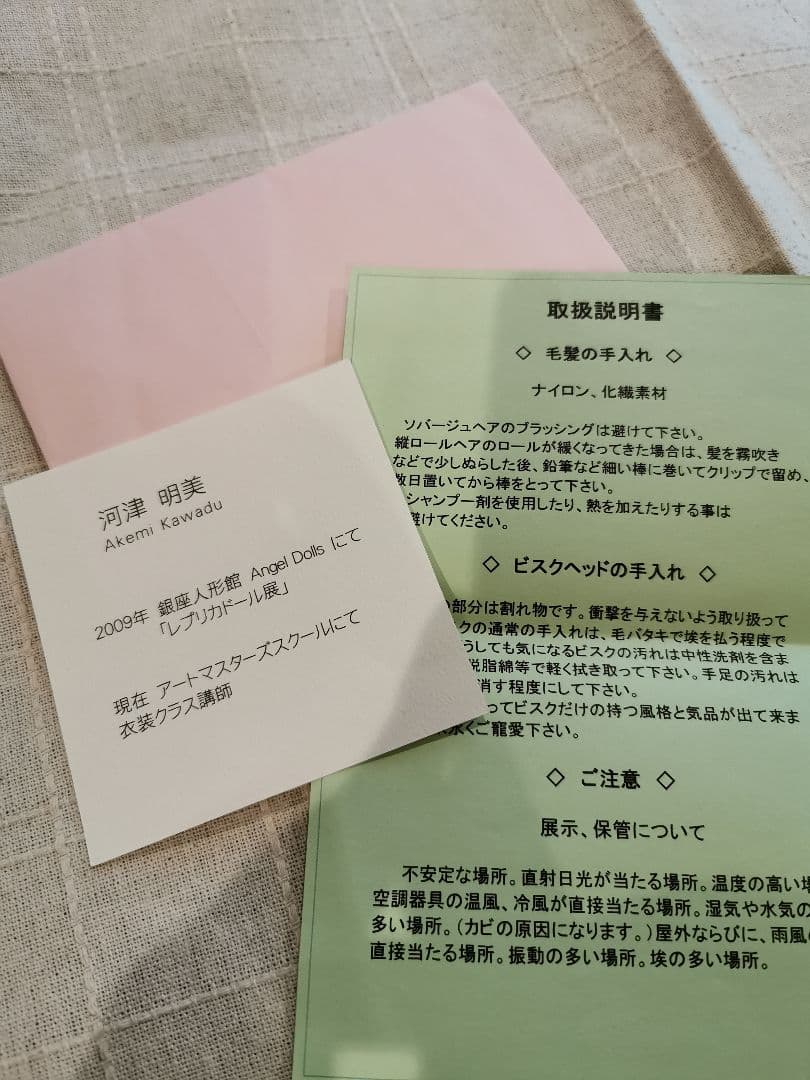 河津 明美
Akemi Kawadu
2009年 銀座人形館 Angel Dolls にて
「レプリカドール展」
現在 アートマスターズスクールにて
衣装クラス講師
取扱説明書
◇ 毛髪の手入れ ◇
ナイロン、化繊素材
ソバージュヘアのブラッシングは避けて下さい。
縦ロールヘアのロールが緩くなってきた場合は、髪を霧吹き
などで少しぬらした後、鉛筆など細い棒に巻いてクリップで留め、
数日置いてから棒をとって下さい。
シャンプー剤を使用したり、熱を加えたりする事は
避けてください。
◇ ビスクヘッドの手入れ ◇
部分は割れ物です。衝撃を与えないよう取り扱って
クの通常の手入れは、毛バタキで埃を払う程度で
うしても気になるビスクの汚れは中性洗剤を含ま
脱脂綿等で軽く拭き取って下さい。手足の汚れは
消す程度にして下さい。
ってビスクだけの持つ風格と気品が出て来ま
永くご寵愛下さい。
◇ ご注意 ◇
展示、保管について
不安定な場所。直射日光が当たる場所。温度の高い場
空調器具の温風、冷風が直接当たる場所。湿気や水気の
多い場所。(カビの原因になります。)屋外ならびに、雨風
直接当たる場所。振動の多い場所。埃の多い場所。